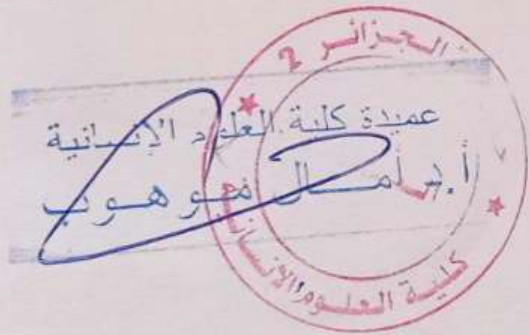 الجزائر 2
عميدة كلية العلوم الإنسانية
أ.د أمال موهوب
كلية العلوم الإنسانية